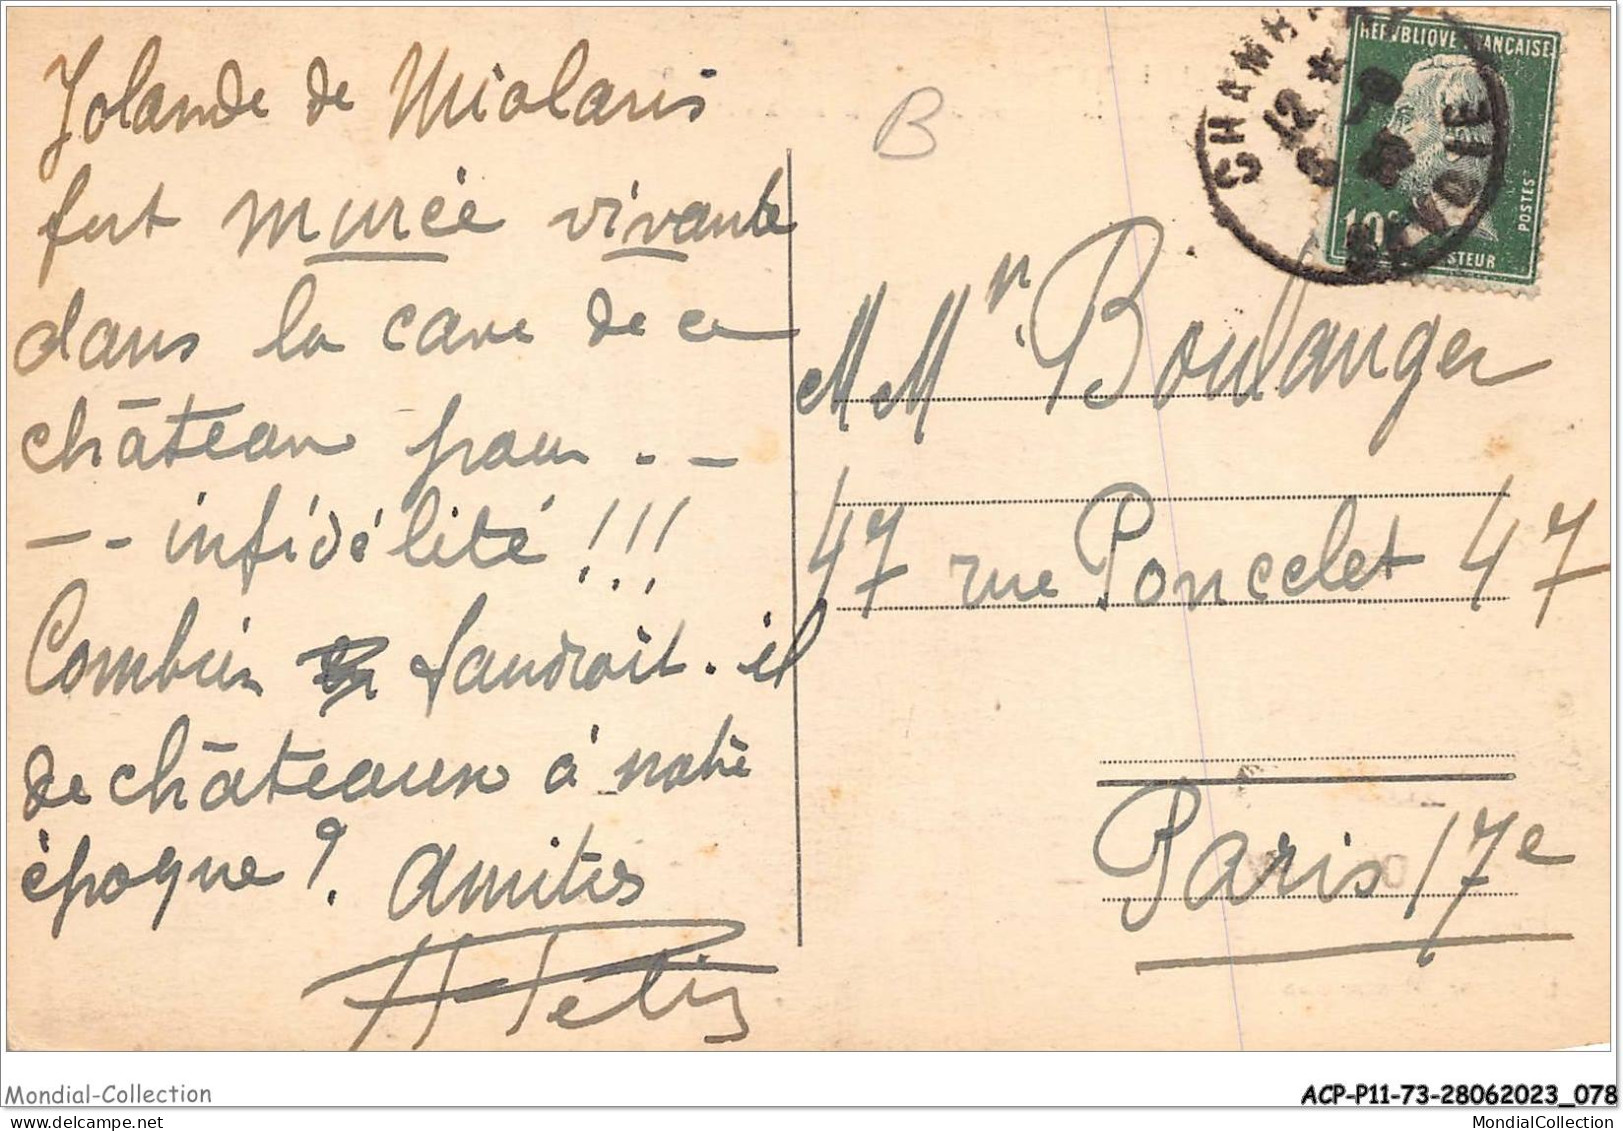 Yolande de Miolans
fut murée vivante
dans la cave de ce
château pour . . –
– – infidélité !!!
Combien faudrait-il
de châteaux à notre
époque ? Amitiés
B
CHAMB
SAVOIE
12 *
REPVBLIQVE FRANÇAISE
POSTES
10c
PASTEUR
M Mr Boulanger
47 rue Poncelet 47
Paris 17e
Mondial-Collection
ACP-P11-73-28062023_078
MondialCollection